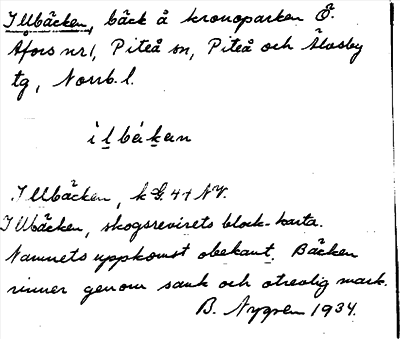 Illbäcken, bäck å kronoparken Ö.
Åfors nr 1, Piteå sn, Piteå och Älvsby
tg, Norrb. l.
ìlbékan
Illbäcken, k G. 4+ NV.
Illbäcken, skogsrevirets block-karta.
Namnets uppkomst obekant. Bäcken
rinner genom sank och otrevlig mark.
B. Nygren 1934.